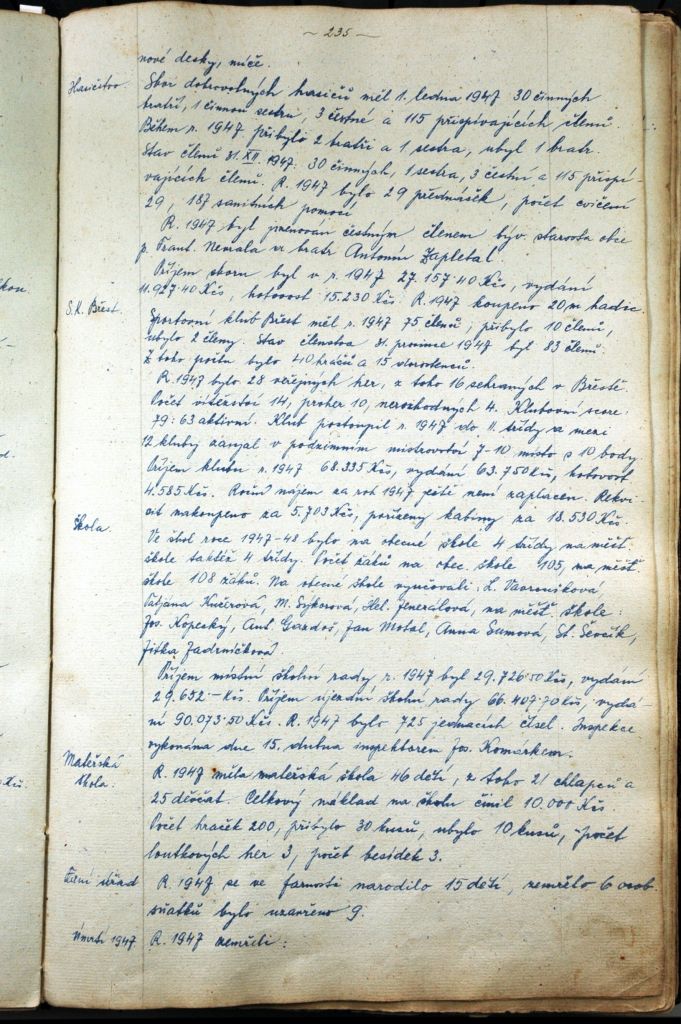 ~ 235 ~
nové desky, míče.
Hasičstvo Sbor dobrovolných hasičů měl 1. ledna 1947 30 činných
bratří, 1 činnou sestru, 3 čestné a 115 přispívajících členů.
Během r. 1947 přibylo 2 bratři a 1 sestra, ubyl 1 bratr.
Stav členů 31. XII. 1947: 30 činných, 1 sestra, 3 čestní a 115 přispí-
vajících členů. R. 1947 bylo 29 přednášek, počet cvičení
29, 187 sanitních pomocí
R. 1947 byl jmenován čestným členem býv. starosta obce
p. Frant. Nemala a bratr Antonín Zapletal.
Příjem sboru byl v r. 1947 27.157·40 Kčs, vydání
11.927·40 Kčs, hotovost 15.230 Kčs. R. 1947 koupeno 20 m hadic.
S.K. Břest. Sportovní klub Břest měl r. 1947 75 členů, přibylo 10 členů,
ubylo 2 členy. Stav členstva 31. prosince 1947 byl 83 členů.
Z toho počtu bylo 40 hráčů a 15 dorostenců.
R. 1947 bylo 28 veřejných her, z toho 16 sehraných v Břestě.
Počet vítězství 14, proher 10, nerozhodných 4. Klubovní score:
79:63 aktivní. Klub postoupil r. 1947 do II. třídy a mezi
12 kluby zaujal v podzimním mistrovství 7–10 místo s 10 body.
Příjem klubu r. 1947 68.335 Kčs, vydání 63.750 Kčs, hotovost
4.585 Kčs. Roční nájem za rok 1947 ještě není zaplacen. Rekvi-
sit nakoupeno za 5.703 Kčs, pořízeny kabiny za 18.530 Kčs.
Škola. Ve škol roce 1947–48 bylo na obecné škole 4 třídy, na měšť.
škole taktéž 4 třídy. Počet žáků na obec. škole 105, na měšť.
škole 108 žáků. Na obecné škole vyučovali: L. Vavroušková
Taťjana Kučerová, M. Sýkorová, Hel. Jenerálová, na měšť. škole:
Jos. Kopecký, Ant. Gazdoš, Jan Motal, Anna Šumová, St. Ševčík,
Jitka Zadrníčková.
Příjem místní školní rady r. 1947 byl 29.726·50 Kčs, vydání
29.652·– Kčs. Příjem újezdní školní rady 66.407·70 Kčs, vydá-
ní 90.073·50 Kčs. R. 1947 bylo 725 jednacích čísel. Inspekce
vykonána dne 15. dubna inspektorem Jos. Komárkem.
Mateřská škola: R. 1947 měla mateřská škola 46 dětí, z toho 21 chlapců a
25 děvčat. Celkový náklad na školu činil 10.000 Kčs.
Počet hraček 200, přibylo 30 kusů, ubylo 10 kusů, počet
loutkových her 3, počet besídek 3.
Farní úřad R. 1947 se ve farnosti narodilo 15 dětí, zemřelo 6 osob
sňatků bylo uzavřeno 9.
Úmrtí 1947. R. 1947 zemřeli: